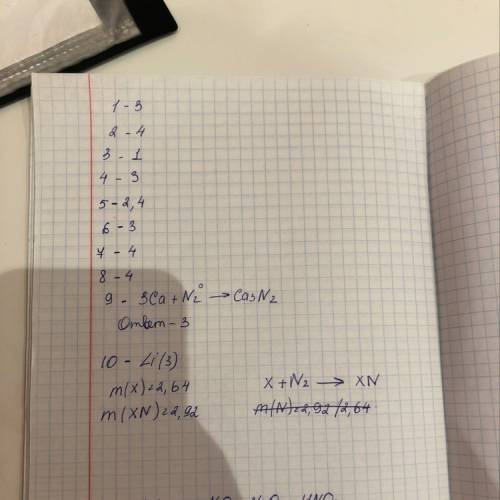 1 - 3
2 - 4
3 - 1
4 - 3
5 - 2,4
6 - 3
7 - 4
8 - 4
9 - 3Ca + N₂⁰ → Ca₃N₂
Ответ - 3
10 - Li(3)
m(X) = 2,64
X + N₂ → XN
m(XN) = 2,92
m(N) = 2,92/2,64